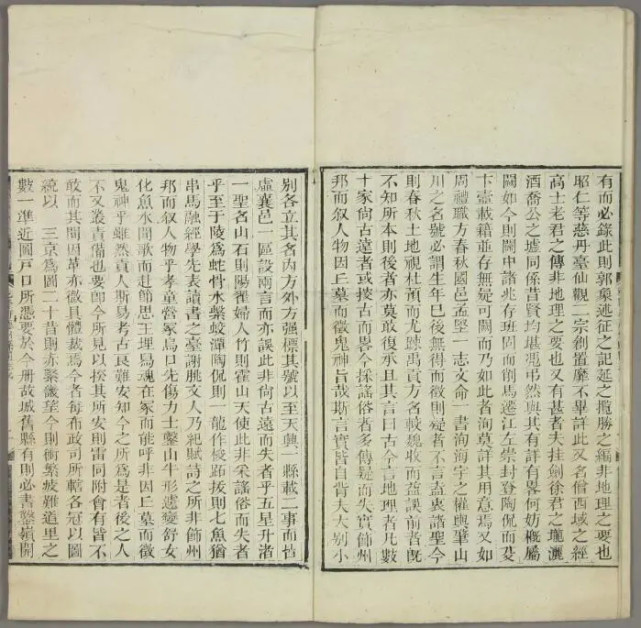 有而必錄此則郭象述征之記延之攬勝之編非地理之要也
昭仁等慈丹臺仙觀二宗創置靡不畢詳此又名僧西域之經
高士老君之傳非地理之要也又有甚者夫挂劍徐君之壠灑
酒喬公之墟同係昔賢均堪憑弔然與其有詳有畧何妨概屬
闕如今則關中諸兆存班固而削馬遷江左崇封登陶侃而芟
卞壼載籍並存無疑可闕而乃如此者詢莫詳其用意焉又如
周禮職方春秋國邑孟堅一志文命一書洵海宇之權輿肇山
川之名號必謂生年巳後無得而徵則疑者不言盍衷諸聖今
則春秋土地視杜預而尤踈禹貢方名較魏收而益誤前者既
不知所本則後者亦莫敢復承且其言曰古今言地理者凡數
十家尚古遠者或搜古而畧今採謠俗者多傳疑而失實飾州
邦而叙人物因丘墓而徵鬼神旨哉斯言實皆自背夫大别小
别各立其名內方外方强標其號以至天興一縣載二事而古
虛襄邑一區設兩言而亦誤此非尚古遠而失者乎五星升沿
一聖名山石則陽翟婦人竹則霍山天使此非采謠俗而失者
乎至于陵爲蛇骨水紫蛟潭陶侃則一龍作梭拔則七魚猶
串馬融經學先表讀書之臺謝朓文人乃祀賦詩之所非飾州
邦而叙人物乎孝童營冢烏口先傷力士鑿山牛形遽變舒女
化魚水聞歌而赴節思王埋舄魂在冢而能呼非因丘墓而徵
鬼神乎雖然責人斯易考古良難安知今之所爲是者後之人
不又叢責備也要卽今所見以揆其所安則雷同附會有皆不
敢而其間因革亦徵具體裁焉今各每布政司所轄各冠以圖
統以 三京爲圖二十昔則至今則衝繁疲難道里之
數一準近圖戸口所憑要於今册故城舊縣有則必書鎭關